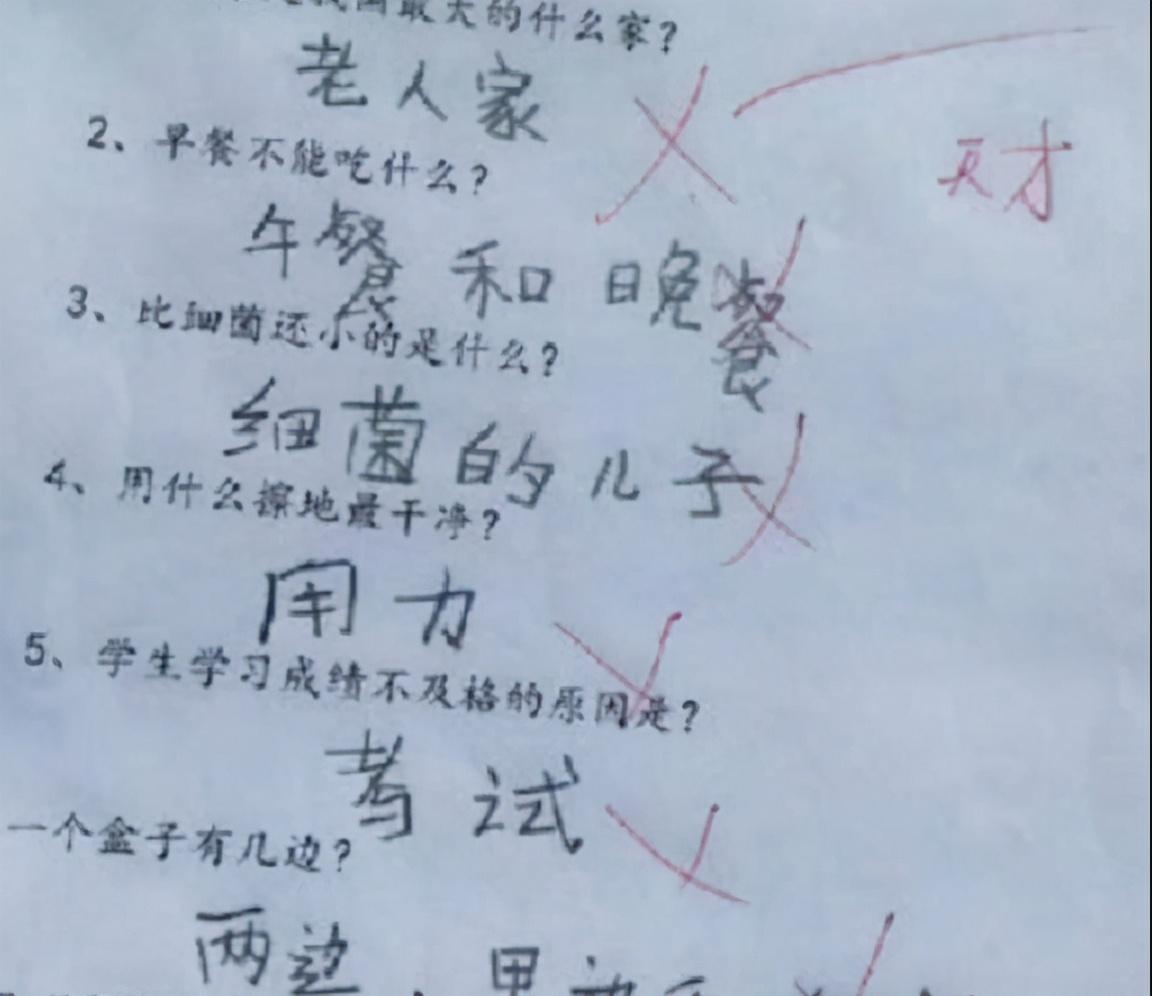 我国最大的什么家?
老人家
天才
2、早餐不能吃什么?
午餐和晚餐
3、比细菌还小的是什么?
细菌的儿子
4、用什么擦地最干净?
用力
5、学生学习成绩不及格的原因是?
考试
一个盒子有几边?
两边
里边